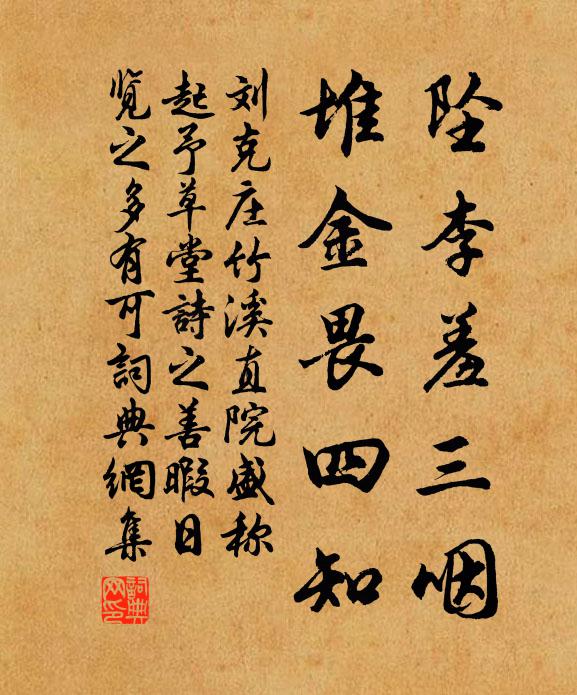 坠李羞三咽
堆金畏四知
刘克庄竹溪直院盛称
起予草堂詩之善暇日
览之多有可詞典網集
詞典网印